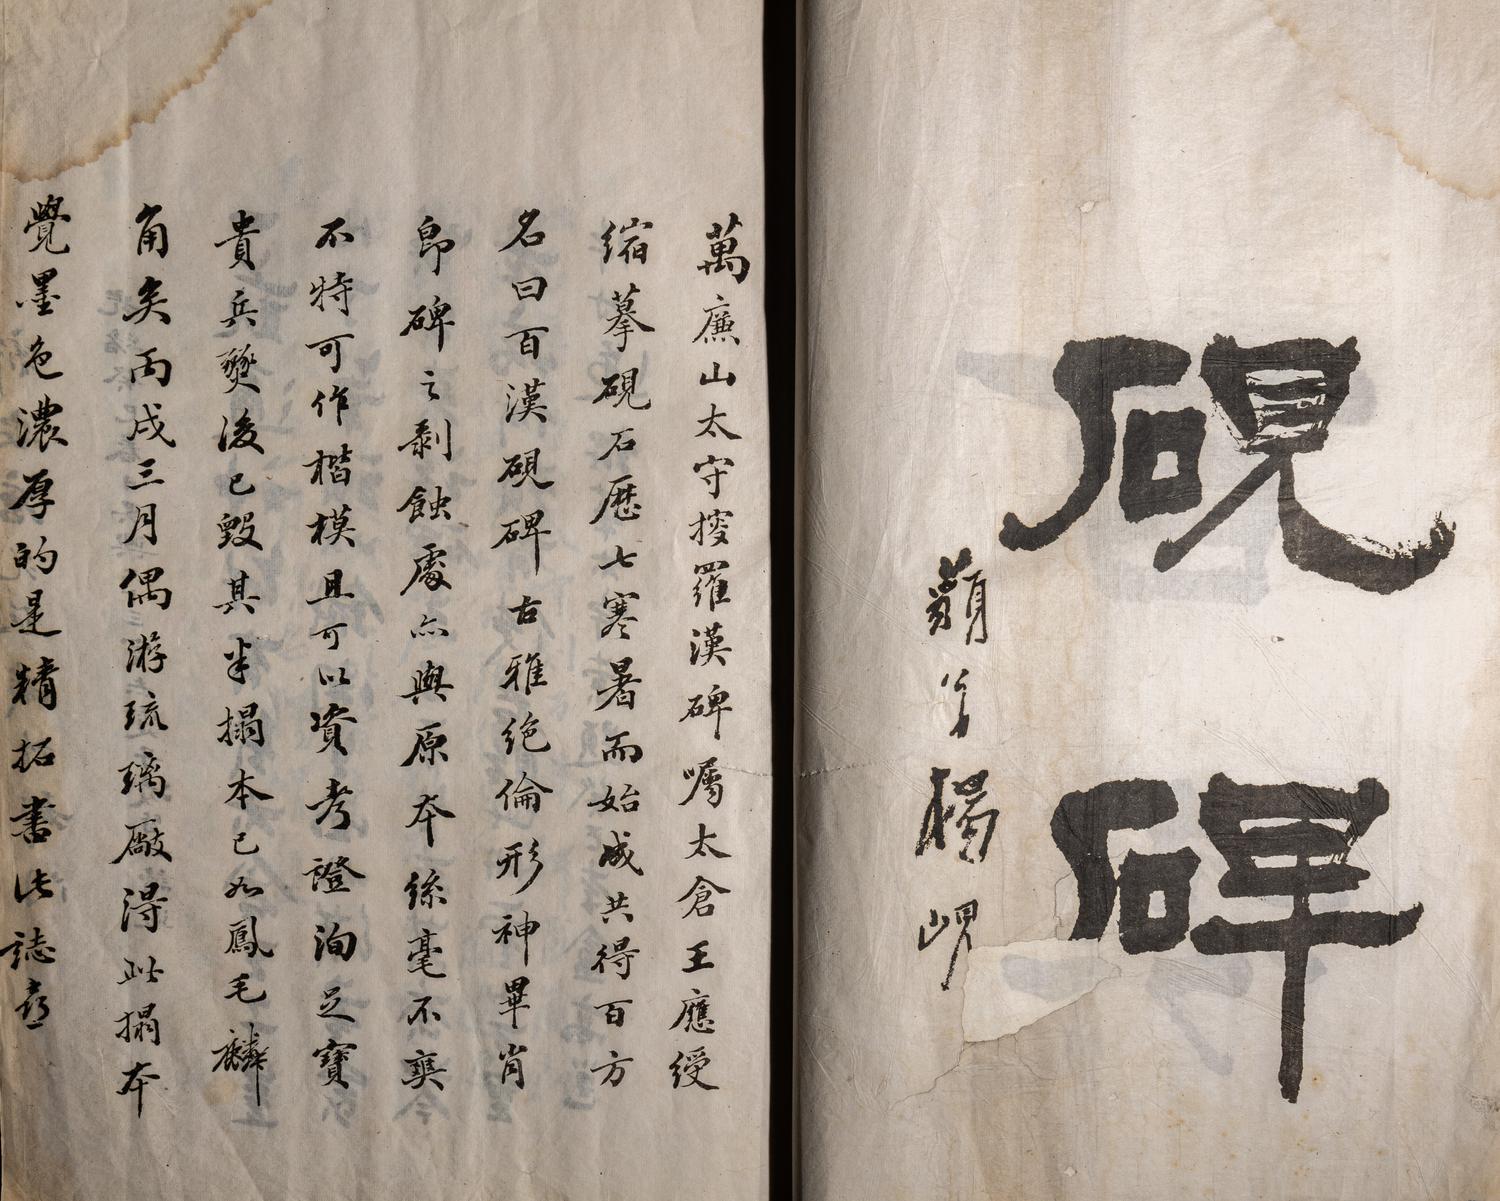 硯碑
藾公楊峴
萬廉山太守搜羅漢碑囑太倉王應綬
縮摹硯石歷七寒暑而始成共得百方
名曰百漢硯碑古雅絕倫形神畢肖
即碑之剥蝕處亦與原本絲毫不爽
不特可作楷模且可以資考證洵足寶
貴兵燹後已毀其半搨本已如鳳毛麟
角矣丙戌三月偶游琉璃廠得此搨本
覺墨色濃厚的是精拓書此誌喜